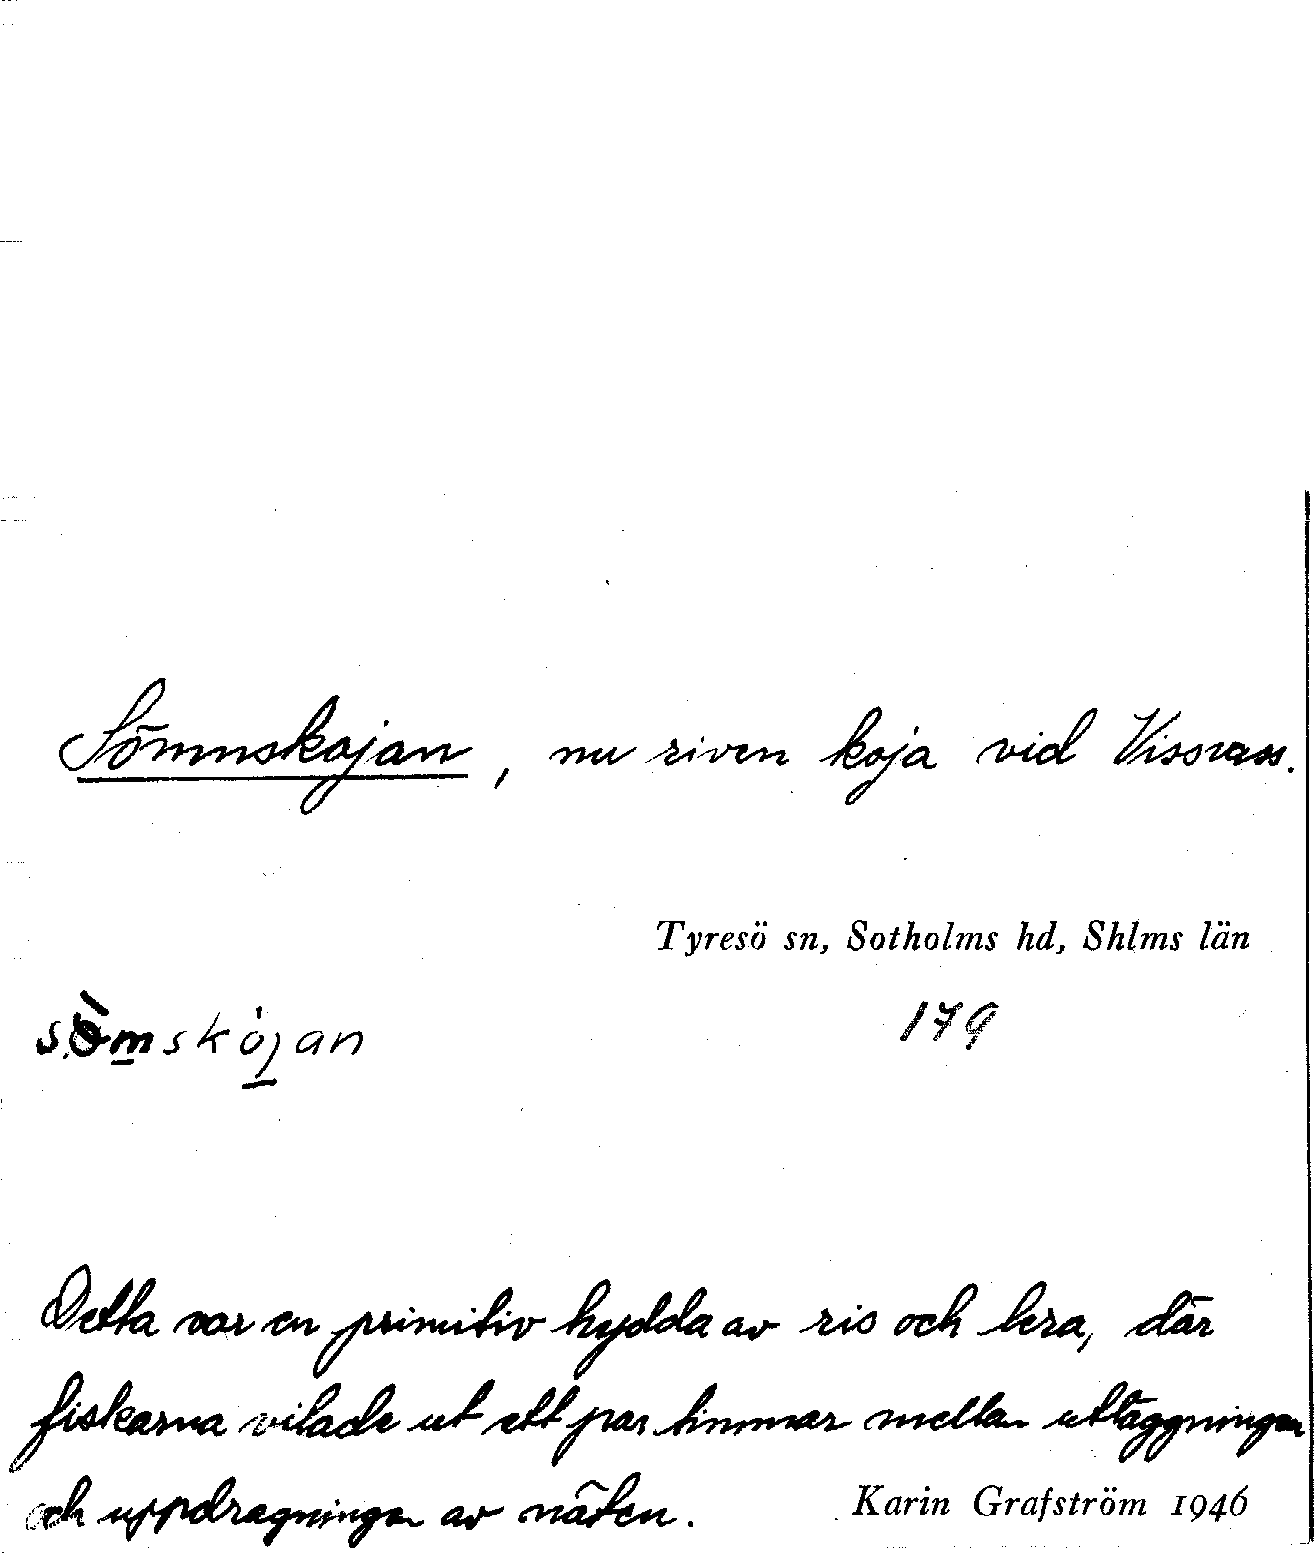 Sömnskojan, nu riven koja vid Vissvass.
Tyresö sn, Sotholms hd, Shlms län
sömskòjan
179
Detta var en primitiv hydda av ris och lera, där
fiskarna vilade ut ett par timmar mellan utläggningen
och uppdragningen av näten.
Karin Grafström 1946